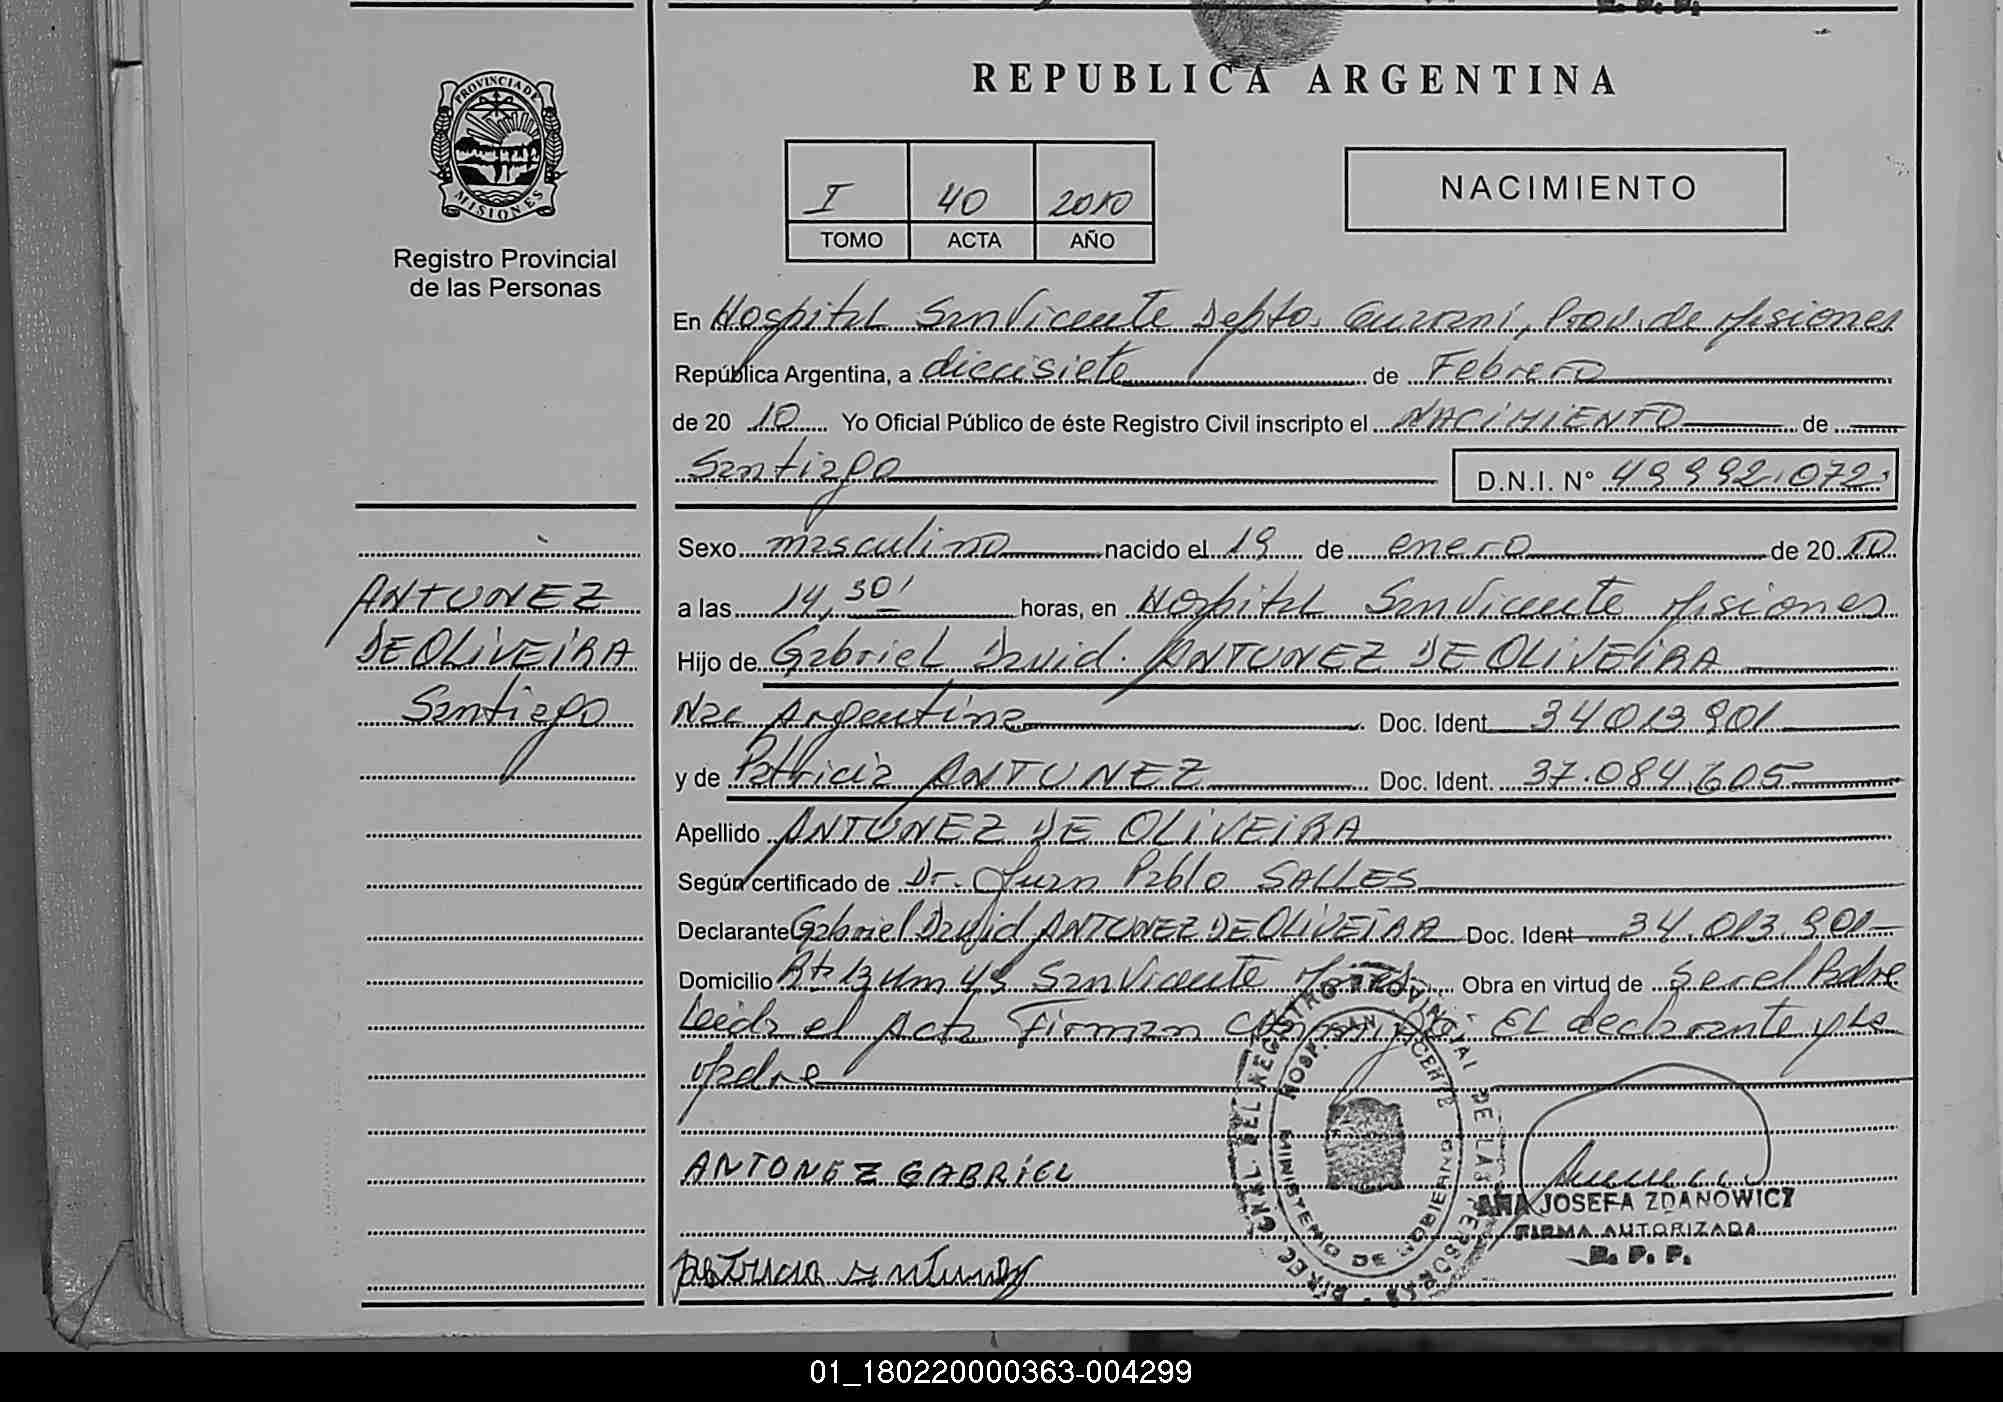 REPUBLICA ARGENTINA
PROVINCIA DE MISIONES
Registro Provincial
de las Personas
I 40 2010
TOMO ACTA AÑO
NACIMIENTO
En Hospital San Vicente Depto. Guarani, Prov. de Misiones
República Argentina, a diecisiete de Febrero
de 20 10 Yo Oficial Público de éste Registro Civil inscripto el NACIMIENTO de
Santiago D.N.I. Nº 49992.072
Sexo masculino nacido el 19 de enero de 20 10
a las 14,30' horas, en Hospital San Vicente Misiones
Hijo de Gabriel David ANTUNEZ DE OLIVEIRA
Nac Argentina Doc. Ident. 34013901
y de Patricia ANTUNEZ Doc. Ident. 37.084.605
Apellido ANTUNEZ DE OLIVEIRA
Según certificado de Dr. Juan Pablo SALLES
Declarante Gabriel David ANTUNEZ DE OLIVEIRA Doc. Ident 34.013.901
Domicilio San Vicente Obra en virtud de ser el Padre
Leida el Acta Firman conmigo EL declarante y La
Madre
ANTUNEZ
DE OLIVEIRA
Santiago
ANTONEZ GABRIEL
Patricia Antunez
DIREC. GRAL. DEL REGISTRO PROVINCIAL DE LAS PERSONAS
HOSP. SAN VICENTE
MINISTERIO DE GOBIERNO
ANA JOSEFA ZDANOWICZ
FIRMA AUTORIZADA
R. P. P.
01_180220000363-004299